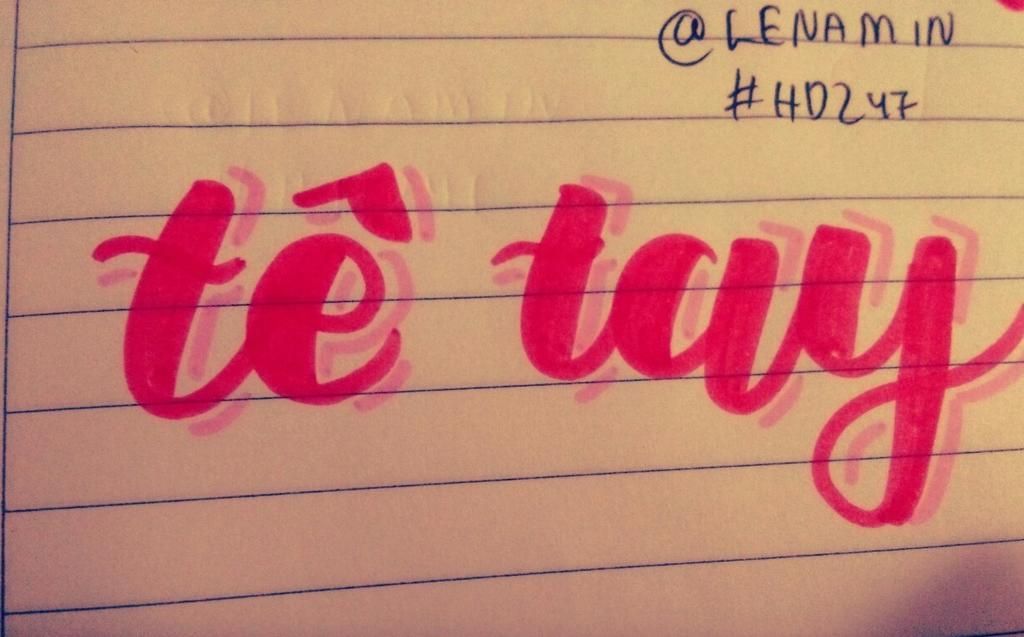 @LENAMIN
#HD247
tê tay